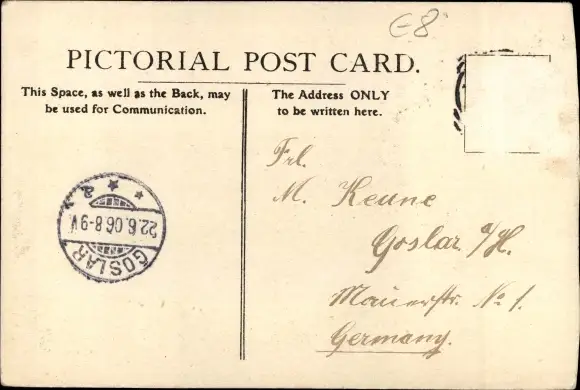 E8
PICTORIAL POST CARD.
This Space, as well as the Back, may
be used for Communication.
The Address ONLY
to be written here.
Frl.
M. Keune
Goslar a/H.
Mauerstr. No 1.
Germany.
GOSLAR
22.6.06.8-9V.